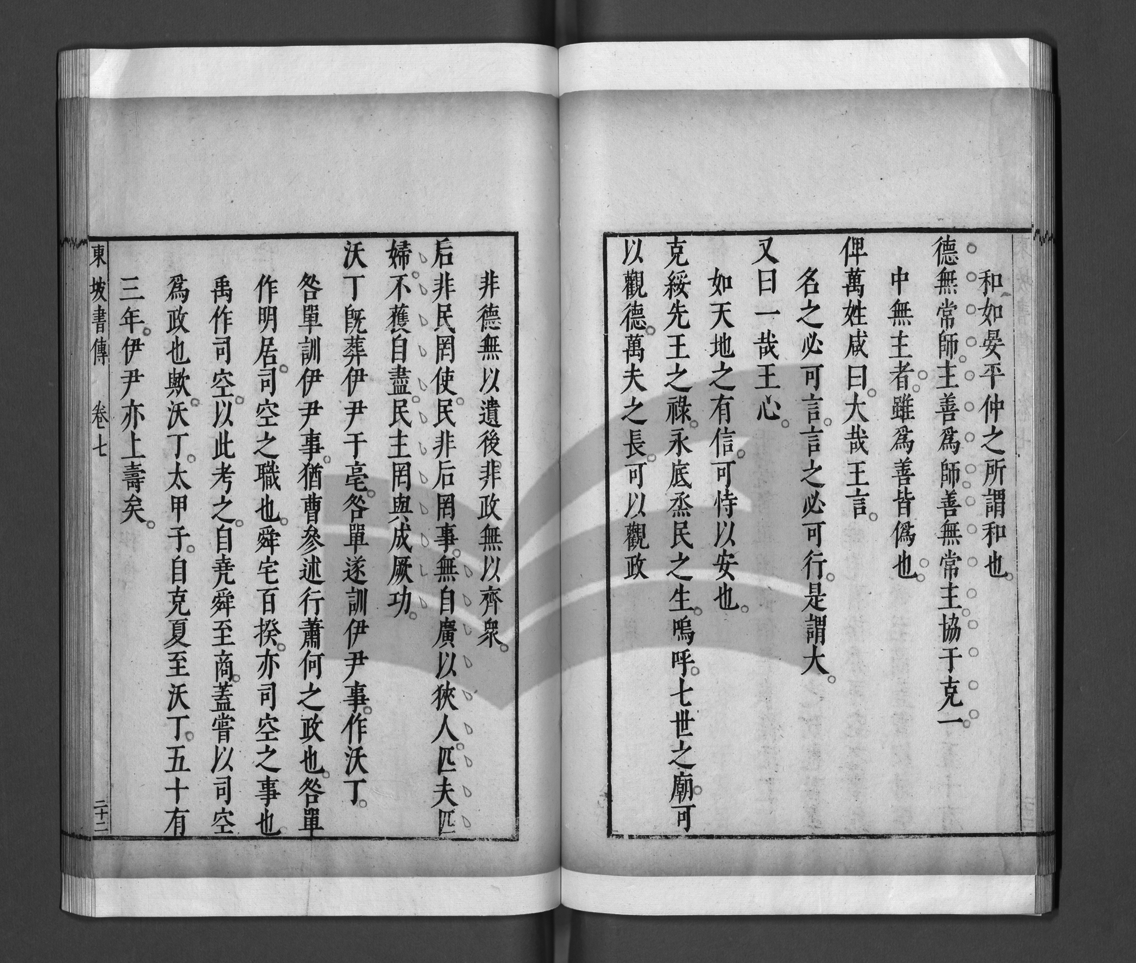 和如晏平仲之所謂和也。
德無常師。主善爲師。善無常主。協于克一。
中無主者。雖爲善皆僞也。
俾萬姓咸曰。大哉王言。
名之必可言。言之必可行。是謂大。
又曰一哉王心。
如天地之有信。可恃以安也。
克綏先王之祿。永底烝民之生。嗚呼。七世之廟。可
以觀德。萬夫之長。可以觀政
非德無以遺後。非政無以齊衆。
后非民罔使。民非后罔事。無自廣以狹人。匹夫匹
婦。不獲自盡。民主罔與成厥功。
沃丁旣葬伊尹于亳。咎單遂訓伊尹事。作沃丁。
咎單訓伊尹事。猶曹參述行蕭何之政也。咎單
作明居。司空之職也。舜宅百揆。亦司空之事也。
禹作司空。以此考之。自堯舜至商。蓋嘗以司空
爲政也歟。沃丁。太甲子。自克夏至沃丁。五十有
三年。伊尹亦上壽矣。
東坡書傳 卷七 二十二